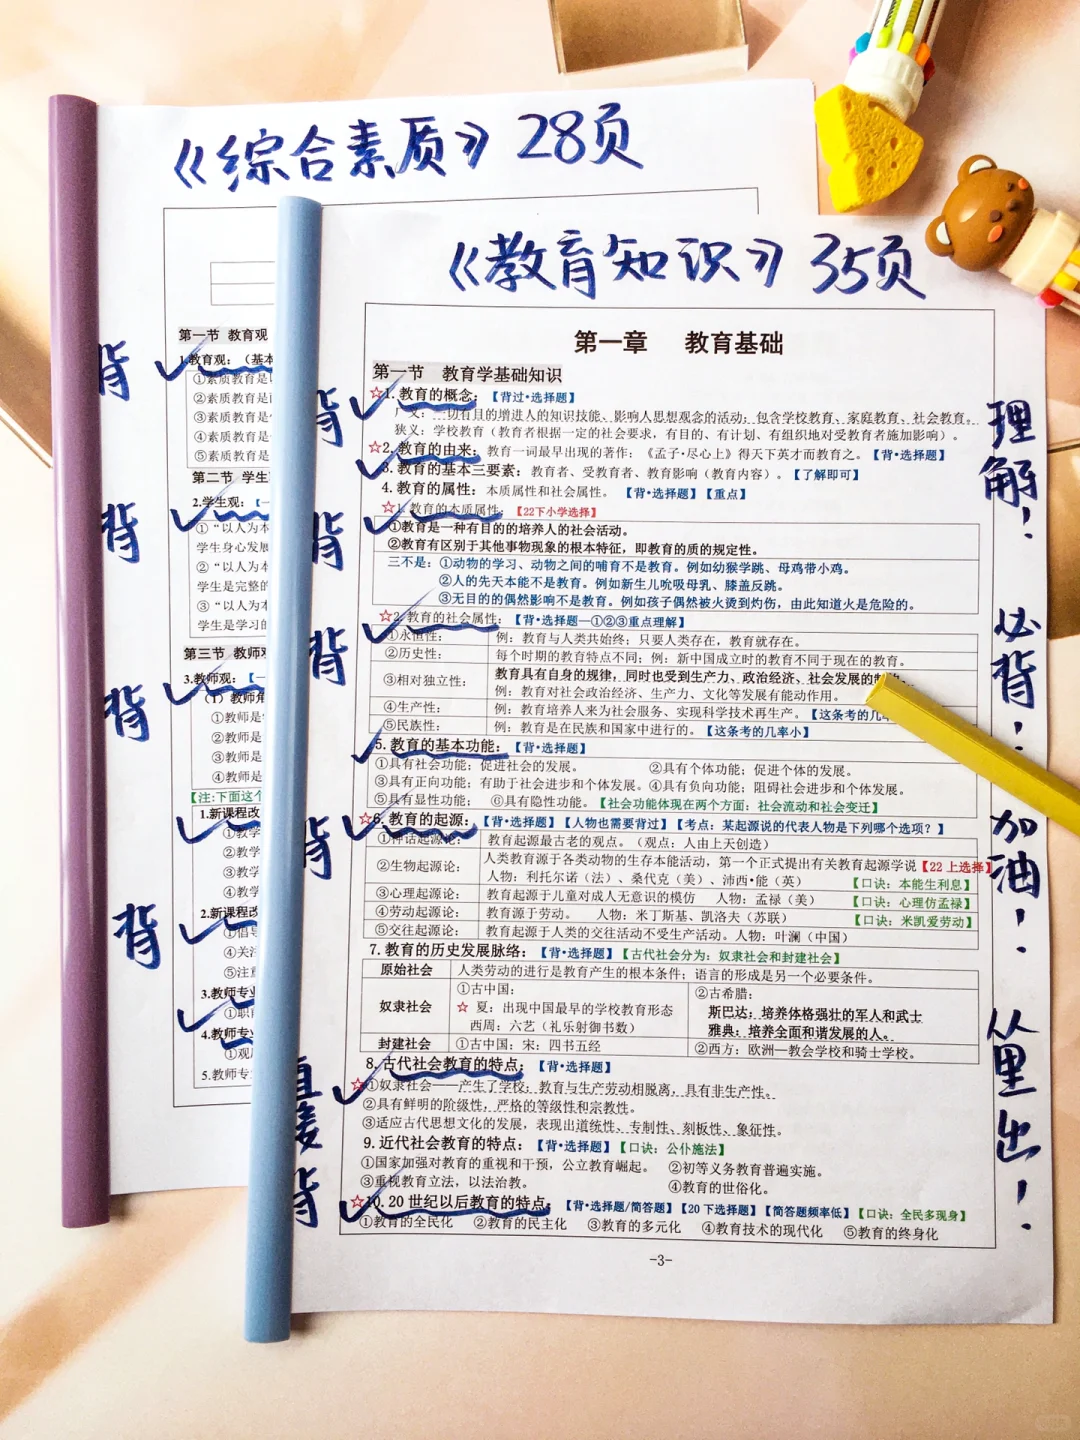 《综合素质》28页
第一节 教育观
1.教育观：（基本
①素质教育是
②素质教育是
③素质教育是
④素质教育是
⑤素质教育是
第二节 学生
2.学生观：
①“以人为本
学生身心发展
②“以人为本
学生是完整的
③“以人为本
学生是学习的
第三节 教师观
3.教师观：
（1）教师角
①教师是
②教师是
③教师是
④教师是
【注:下面这个
1.新课程改
①教学
②教学
③教学
④教学
2.新课程改
①倡导
④关注
⑤注重
3.教师专业
①职前
4.教师专业
①观
5.教师专
背
背
背
背
《教育知识》35页
第一章 教育基础
第一节 教育学基础知识
☆1.教育的概念：【背过·选择题】
广义：一切有目的增进人的知识技能、影响人思想观念的活动；包含学校教育、家庭教育、社会教育。
狭义：学校教育（教育者根据一定的社会要求，有目的、有计划、有组织地对受教育者施加影响）。
☆2.教育的由来：教育一词最早出现的著作：《孟子·尽心上》得天下英才而教育之。【背·选择题】
3.教育的基本三要素：教育者、受教育者、教育影响（教育内容）。【了解即可】
4.教育的属性：本质属性和社会属性。【背·选择题】【重点】
☆1.教育的本质属性：【22下小学选择】
①教育是一种有目的的培养人的社会活动。
②教育有区别于其他事物现象的根本特征，即教育的质的规定性。
三不是：①动物的学习、动物之间的哺育不是教育。例如幼猴学跳、母鸡带小鸡。
②人的先天本能不是教育。例如新生儿吮吸母乳、膝盖反跳。
③无目的的偶然影响不是教育。例如孩子偶然被火烫到灼伤，由此知道火是危险的。
☆2.教育的社会属性：【背·选择题—①②③重点理解】
①永恒性：例：教育与人类共始终；只要人类存在，教育就存在。
②历史性：每个时期的教育特点不同；例：新中国成立时的教育不同于现在的教育。
③相对独立性：教育具有自身的规律，同时也受到生产力、政治经济、社会发展的制
例：教育对社会政治经济、生产力、文化等发展有能动作用。
④生产性：例：教育培养人来为社会服务、实现科学技术再生产。【这条考的几率
⑤民族性：例：教育是在民族和国家中进行的。【这条考的几率小】
5.教育的基本功能：【背·选择题】
①具有社会功能；促进社会的发展。 ②具有个体功能；促进个体的发展。
③具有正向功能；有助于社会进步和个体发展。④具有负向功能；阻碍社会进步和个体发展。
⑤具有显性功能。 ⑥具有隐性功能。【社会功能体现在两个方面：社会流动和社会变迁】
☆6.教育的起源：【背·选择题】【人物也需要背过】【考点：某起源说的代表人物是下列哪个选项？】
①神话起源论：教育起源最古老的观点。（观点：人由上天创造）
②生物起源论：人类教育源于各类动物的生存本能活动，第一个正式提出有关教育起源学说【22上选择】
人物：利托尔诺（法）、桑代克（美）、沛西·能（英）【口诀：本能生利息】
③心理起源论：教育起源于儿童对成人无意识的模仿 人物：孟禄（美）【口诀：心理仿孟禄】
④劳动起源论：教育源于劳动。 人物：米丁斯基、凯洛夫（苏联）【口诀：米凯爱劳动】
⑤交往起源论：教育起源于人类的交往活动不受生产活动。人物：叶澜（中国）
7.教育的历史发展脉络：【背·选择题】【古代社会分为：奴隶社会和封建社会】
原始社会 人类劳动的进行是教育产生的根本条件；语言的形成是另一个必要条件。
奴隶社会 ①古中国：
☆ 夏：出现中国最早的学校教育形态
西周：六艺（礼乐射御书数）
②古希腊：
斯巴达：培养体格强壮的军人和武士
雅典：培养全面和谐发展的人。
封建社会 ①古中国：宋：四书五经 ②西方：欧洲—教会学校和骑士学校。
8.古代社会教育的特点：【背·选择题】
☆①奴隶社会——产生了学校，教育与生产劳动相脱离，具有非生产性。
②具有鲜明的阶级性，严格的等级性和宗教性。
③适应古代思想文化的发展，表现出道统性、专制性、刻板性、象征性。
9.近代社会教育的特点：【背·选择题】【口诀：公仆施法】
①国家加强对教育的重视和干预，公立教育崛起。 ②初等义务教育普遍实施。
③重视教育立法，以法治教。 ④教育的世俗化。
☆10.20世纪以后教育的特点：【背·选择题/简答题】【20下选择题】【简答题频率低】【口诀：全民多现身】
①教育的全民化 ②教育的民主化 ③教育的多元化 ④教育技术的现代化 ⑤教育的终身化
-3-
背
背
背
背
直接
背
理解！
必背！
加油！
从里出！